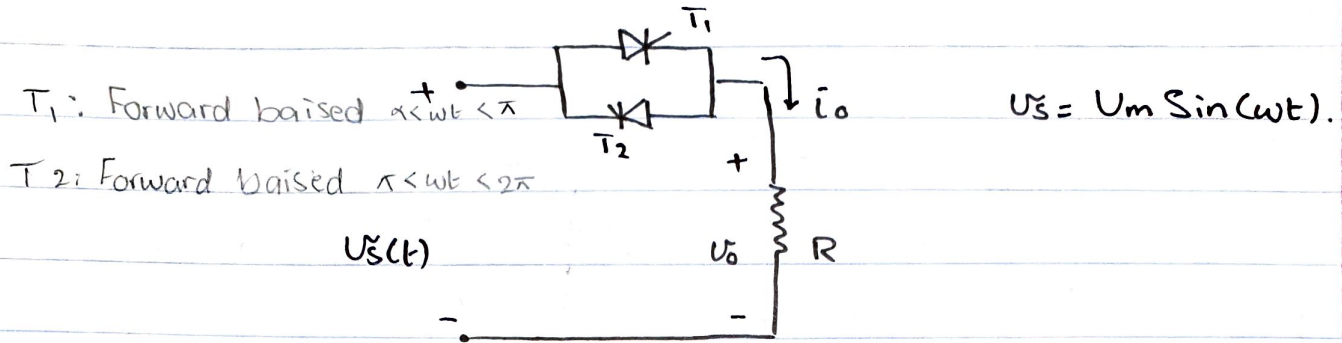 T₁
T₁: Forward baised α<wt <π
+
i₀
Vs̃ = Vm Sin(wt).
T₂
T 2: Forward baised π<wt <2π
+
Vs̃(t)
V₀
R
-
-